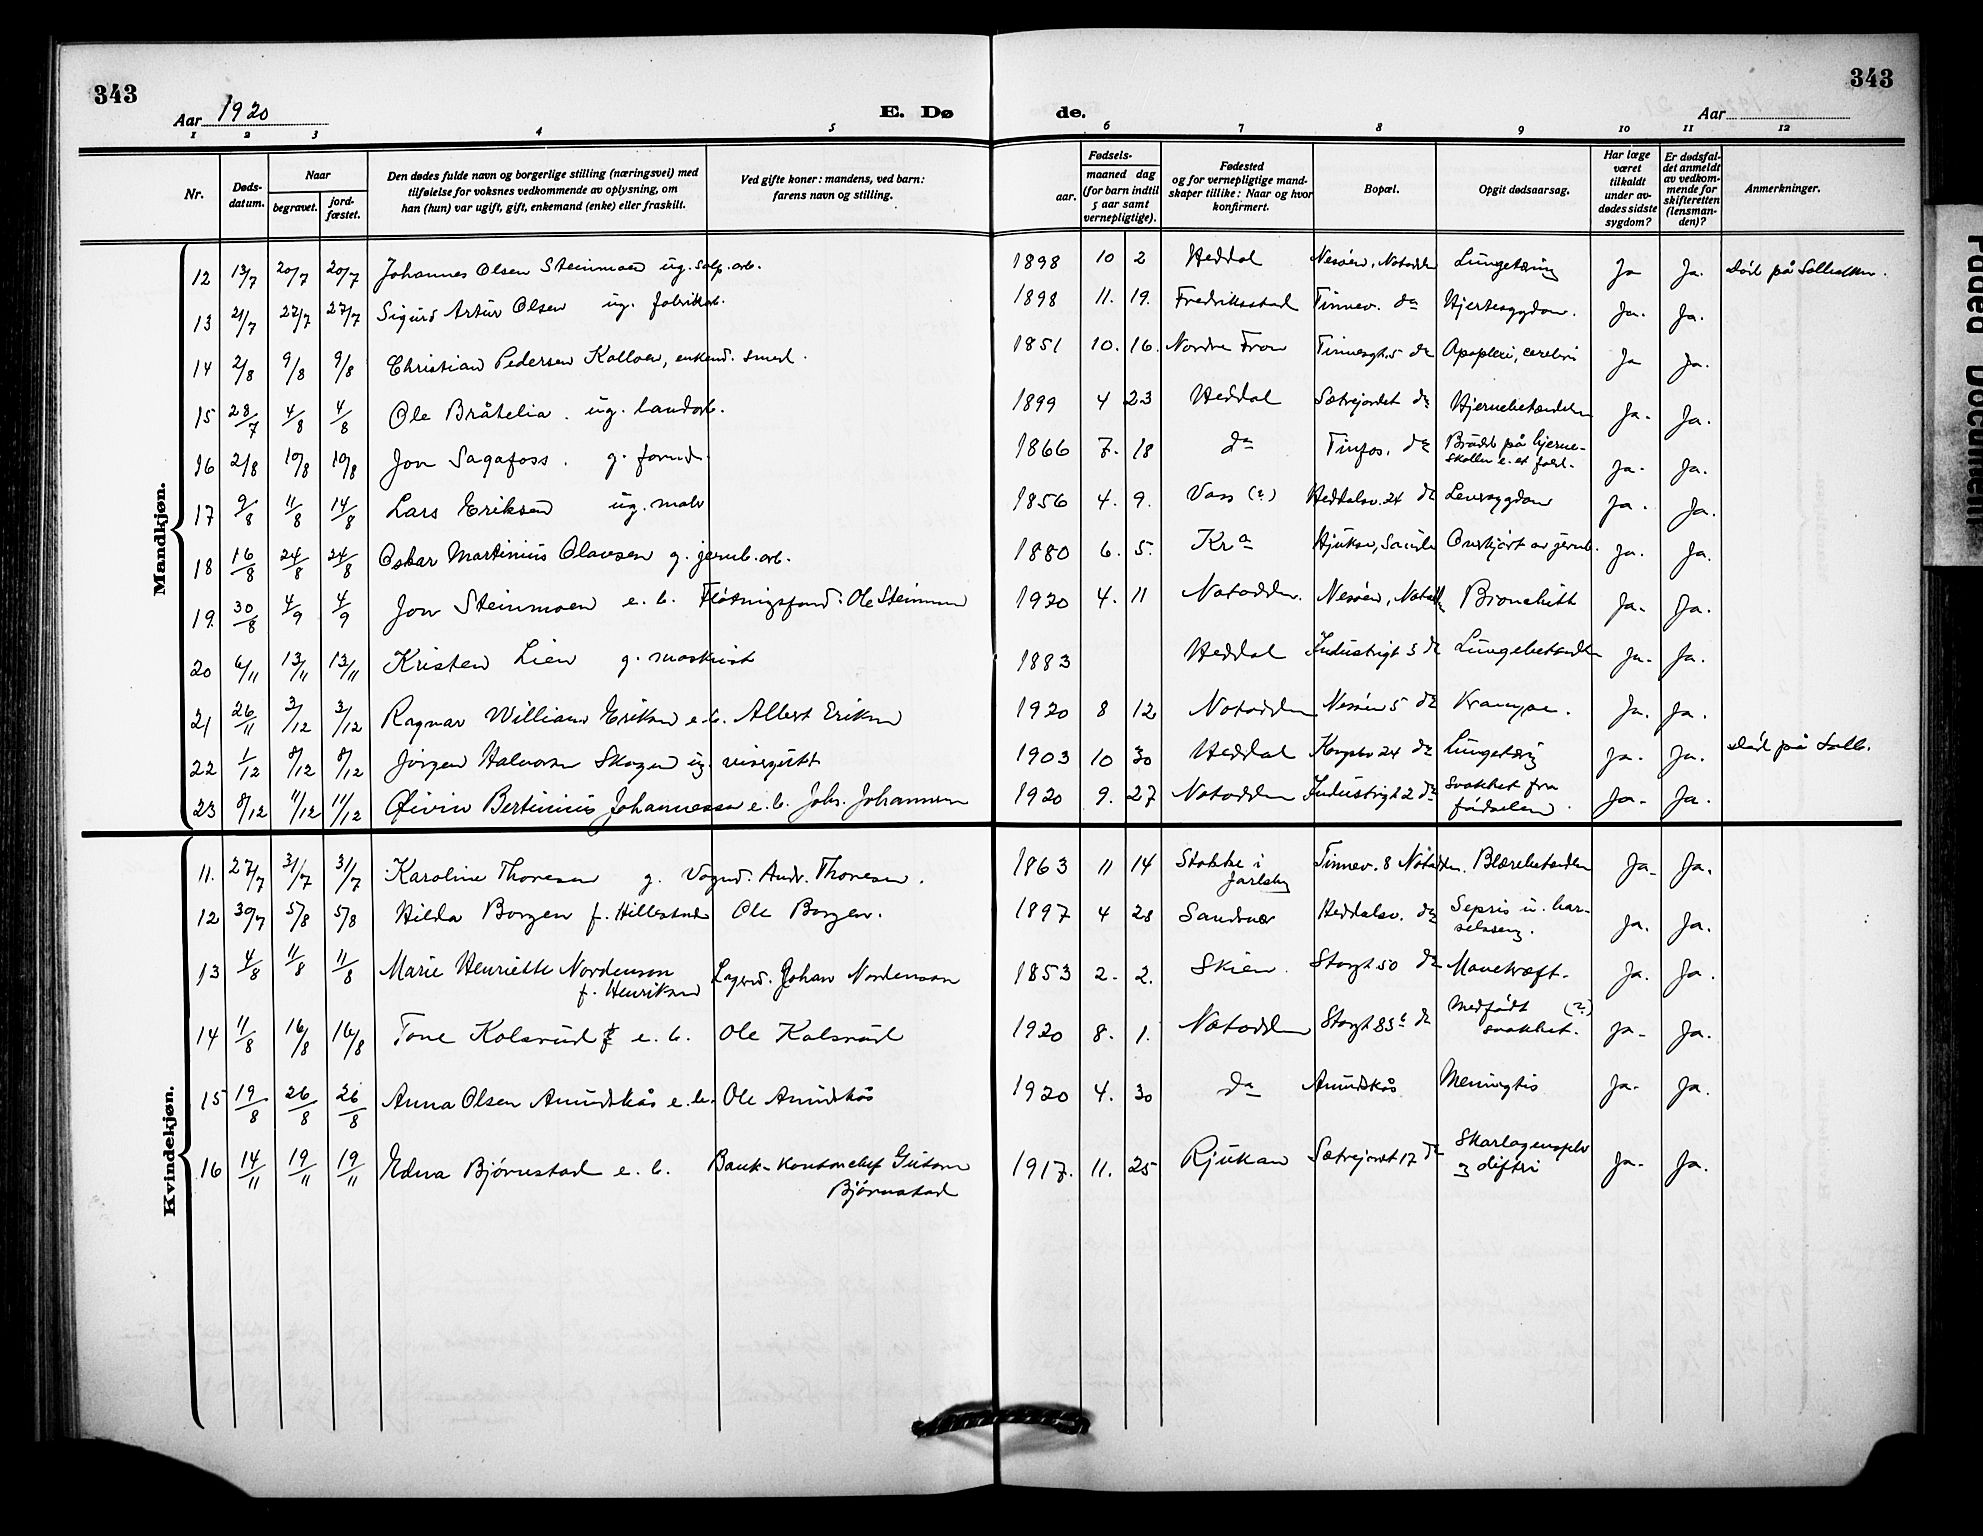 343
343
Aar 1920
E. Dø
de.
Aar
1 2 3 4 5 6 7 8 9 10 11 12
Nr.
Døds-
datum.
Naar
begravet.
jord-
fæstet.
Den dødes fulde navn og borgerlige stilling (næringsvei) med
tilføielse for voksnes vedkommende av oplysning, om
han (hun) var ugift, gift, enkemand (enke) eller fraskilt.
Ved gifte koner: mandens, ved barn:
farens navn og stilling.
Fødsels-
aar.
maaned dag
(for barn indtil
5 aar samt
vernepligtige).
Fødested
og for vernepligtige mand-
skaper tillike: Naar og hvor
konfirmert.
Bopæl.
Opgit dødsaarsag.
Har læge
været
tilkaldt
under av-
dødes sidste
sygdom?
Er dødsfal-
det anmeldt
av vedkom-
mende for
skifteretten
(lensman-
den)?
Anmerkninger.
Mandkjøn.
12 13/7 20/7 20/7 Johannes Olsen Steinmoen ug. salp. arb. 1898 10 2 Heddal Nesøen, Notodden Lungetæring Ja Ja. Død på
13 21/7 27/7 27/7 Sigurd Artur Olsen ug. fabrikarb. 1898 11. 19. Fredriksstad Tinnev. do Hjertesygdom. Ja. Ja.
14 2/8 9/8 9/8 Christian Pedersen enkemd. smed. 1851 10. 16. Nordre Fron Tinnesgt. 5 do Apoplexi, cerebri Ja Ja.
15 28/7 4/8 4/8 Ole Bråtelia. ug. landarb. 1899 4 23 Heddal Sætrejordet do Hjernebetændelse Ja. Ja.
16 2/8 10/8 10/8 Jon Sagafoss. g. formd. 1866 7. 18 do Tinfos. do Brudd på hjerne-
skallen e. et fald. Ja. Ja.
17 9/8 11/8 14/8 Lars Eriksen ug. maler 1856 4. 9. Voss (?) Heddalsv. 24 do Leversygdom Ja. Ja.
18 16/8 24/8 24/8 Oskar Martinius Olausen g. jernb. arb. 1880 6. 5. Kra Hjuksa, Sauland Overkjørt av jernb. Ja. Ja.
19. 30/8 4/9 4/9 Jon Steinmoen e. b. Fløtningsformd: Ole Steinmoen 1920 4. 11 Notodden. Nesøen, Notodd. Bronchitt Ja. Ja.
20 6/11 13/11 13/11 Kristen Lien g. maskinist 1883 Heddal Industrigt 3 do Lungebetændelse Ja. Ja.
21 26/11 3/12 3/12 Ragnar William Eriksen e. b. Albert Eriksen 1920 8 12 Notodden Nesøen 5 do Krampe. Ja. Ja.
22 1/12 8/12 8/12 Jørgen Halvorsen Skogen ug. visergutt 1903 10 30 Heddal 24 do Lungetæring Ja. Ja. Død på
23 8/12 11/12 11/12 Øivin Bertinius Johannessen e. b. Johs. Johannessen 1920 9. 27 Notodden Industrigt 2 do Svakhet fra
fødselen. Ja. Ja.
Kvindekjøn.
11. 27/7 31/7 31/7 Karoline Thoresen g. Vognd. Andr. Thoresen. 1863 11 14 Stokke i
Jarlsberg Tinnev. 8 Notodden. Blærebetændelse Ja. Ja.
12 30/7 5/8 5/8 Hilda Borgen f. Hillestad Ole Borgen. 1897 4 28 Sandsvær Heddalsv. do Sepsis u. bar-
selseng. Ja. Ja.
13 4/8 11/8 11/8 Marie Henriette Nordenson
f. Henriksen Lagerd. Johan Nordenson 1853 2. 2. Skien. Storgt 50 do Mavekræft. Ja. Ja.
14 11/8 16/8 16/8 Tone Kolsrud e. b. Ole Kolsrud 1920 8. 1. Notodden Storgt 83b do Medfødt (?)
svakhet. Ja. Ja.
15 19/8 26/8 26/8 Anna Olsen Amundskås e. b. Ole Amundskås 1920 4. 30 do Amundskås Meningtis Ja. Ja.
16 14/11 19/11 19/11 Edna Bjørnstad e. b. Bank-kontorchef Gustav
Bjørnstad 1917. 11. 25 Rjukan Sætrejordet 17 do Skarlagensfeber
og difteri Ja. Ja.
Faded Document